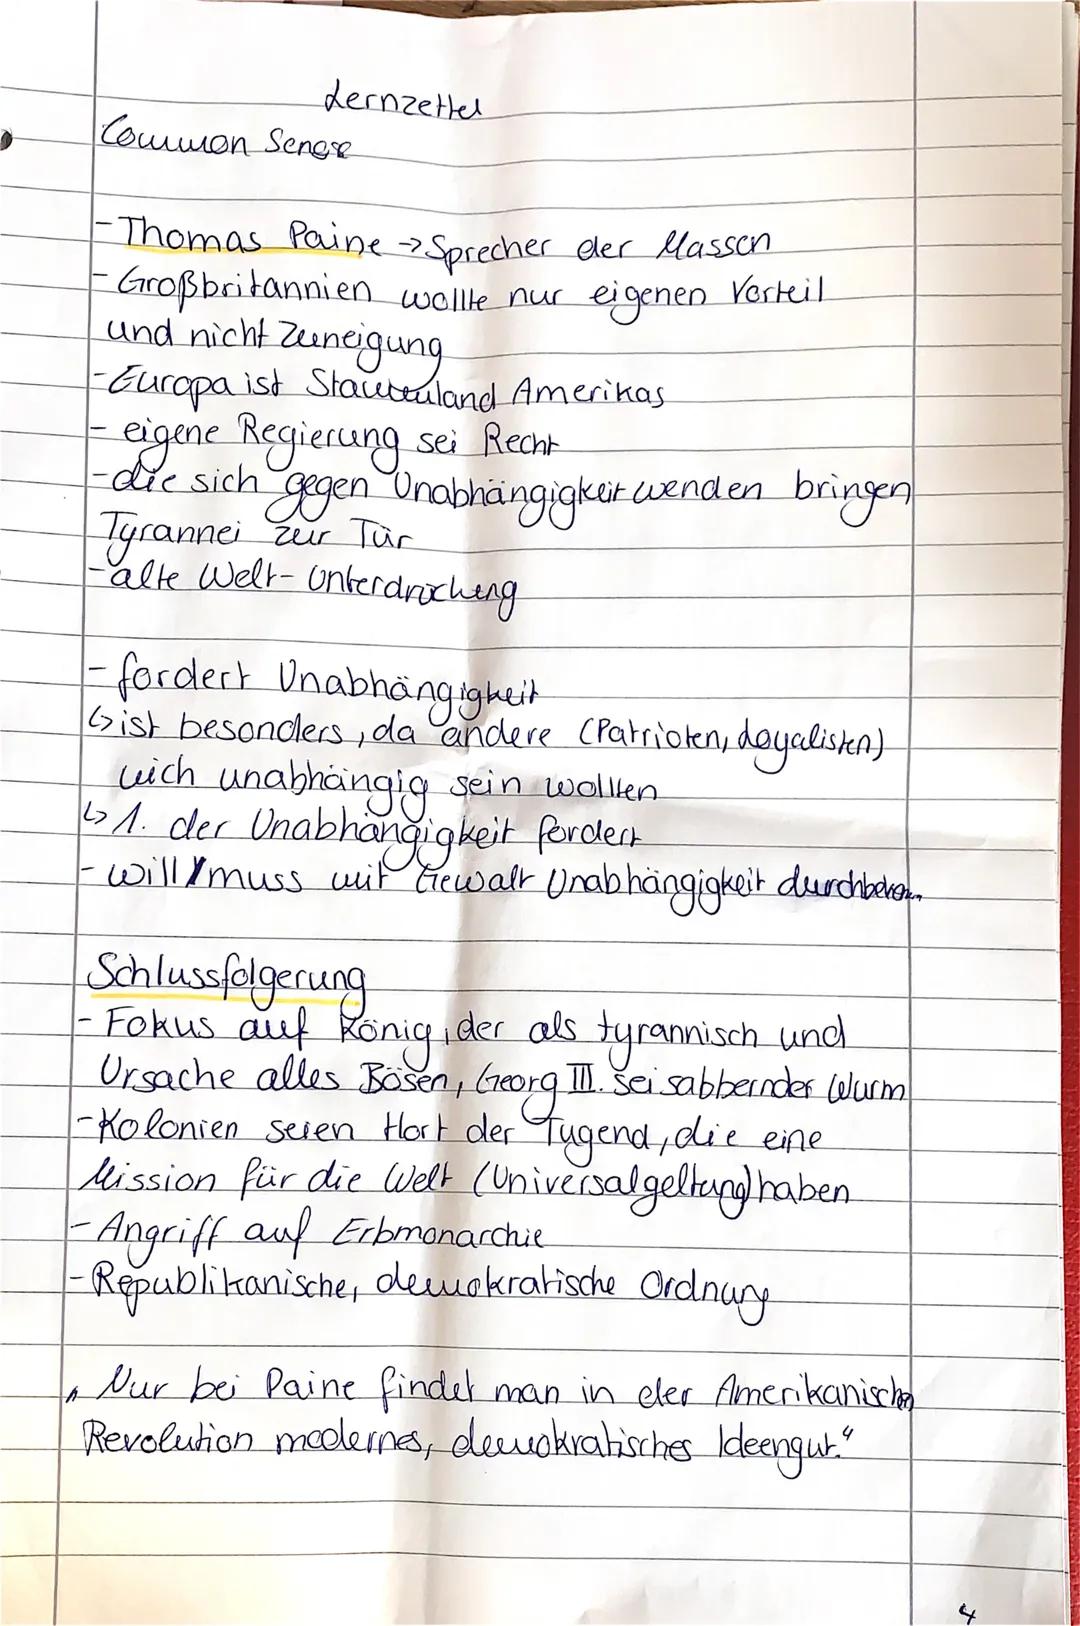 Lernzettel
Common Sense
- Thomas Paine → Sprecher der Massen
- Großbritannien wollte nur eigenen Vorteil
und nicht Zuneigung
- Europa ist Stammland Amerikas
- eigene Regierung sei Recht
- die sich gegen Unabhängigkeit wenden bringen
Tyrannei zur Tür
- alte Welt - Unterdrückung
- fordert Unabhängigkeit
↳ ist besonders, da andere (Patrioten, Loyalisten)
nich unabhängig sein wollten
↳ 1. der Unabhängigkeit fordert
- will/muss mit Gewalt Unabhängigkeit
Schlussfolgerung
- Fokus auf König, der als tyrannisch und
Ursache alles Bösen, Georg III. sei sabbernder Wurm
- Kolonien seien Hort der Tugend, die eine
Mission für die Welt (Universalgeltung) haben
- Angriff auf Erbmonarchie
- Republikanische, demokratische Ordnung
„Nur bei Paine findet man in der Amerikanischen
Revolution modernes, demokratisches Ideengut."
4